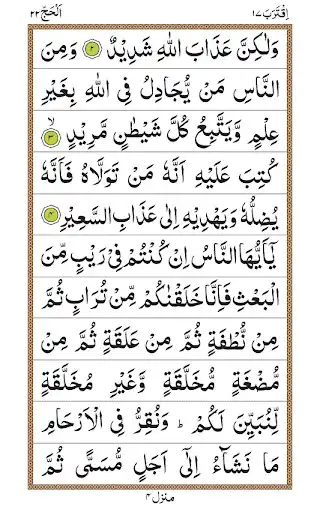 اِقْتَرَبَ ١٧ اَلْحَجّ ٢٢
وَلٰكِنَّ عَذَابَ اللّٰهِ شَدِيْدٌ ﴿٢﴾ وَمِنَ
النَّاسِ مَنْ يُّجَادِلُ فِى اللّٰهِ بِغَيْرِ
عِلْمٍ وَّيَتَّبِعُ كُلَّ شَيْطٰنٍ مَّرِيْدٍ ۙ﴿٣﴾
كُتِبَ عَلَيْهِ اَنَّهٗ مَنْ تَوَلَّاهُ فَاَنَّهٗ
يُضِلُّهٗ وَيَهْدِيْهِ اِلٰى عَذَابِ السَّعِيْرِ ﴿٤﴾
يٰٓاَيُّهَا النَّاسُ اِنْ كُنْتُمْ فِىْ رَيْبٍ مِّنَ
الْبَعْثِ فَاِنَّا خَلَقْنٰكُمْ مِّنْ تُرَابٍ ثُمَّ
مِنْ نُّطْفَةٍ ثُمَّ مِنْ عَلَقَةٍ ثُمَّ مِنْ
مُّضْغَةٍ مُّخَلَّقَةٍ وَّغَيْرِ مُخَلَّقَةٍ
لِّنُبَيِّنَ لَكُمْ ؕ وَنُقِرُّ فِى الْاَرْحَامِ
مَا نَشَآءُ اِلٰٓى اَجَلٍ مُّسَمًّى ثُمَّ
منزل ٤